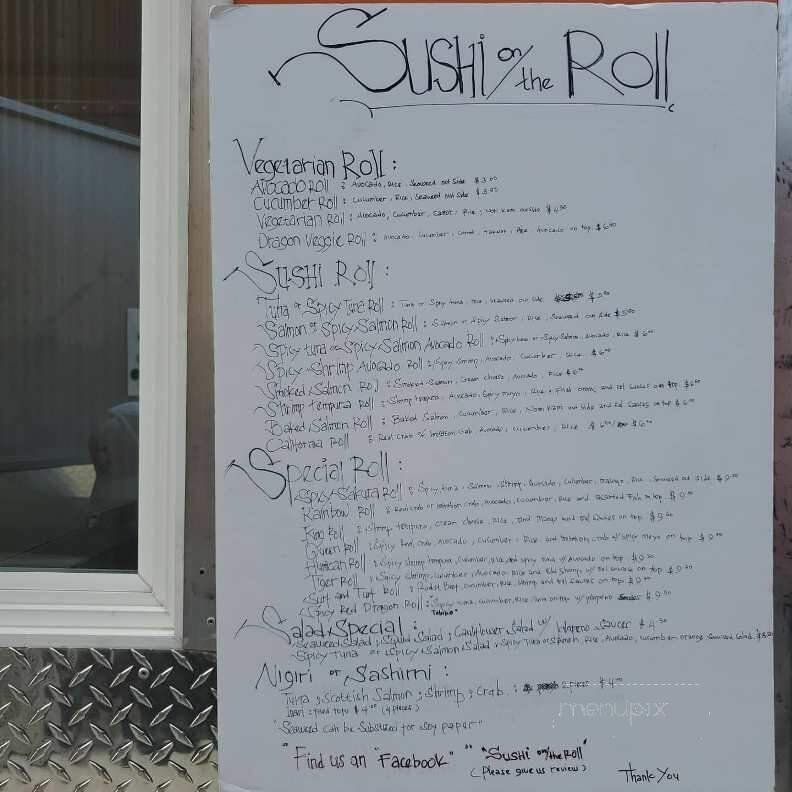 Sushi on/the Roll
Vegetarian Roll :
Avocado Roll : Avocado, Rice, Seaweed out side $3.00
Cucumber Roll : Cucumber, Rice, Seaweed out side $3.00
Vegetarian Roll : Avocado, Cucumber, Carrot, Rice, outside
Dragon Veggie Roll : Avocado, Cucumber, Carrot, Rice, Avocado on top $6.00
Sushi Roll :
Tuna or Spicy Tuna Roll : Tuna or Spicy tuna, Rice, Seaweed out side
Salmon or Spicy Salmon Roll : Salmon or Spicy Salmon, Rice, Seaweed out side $5.00
Spicy tuna or Spicy Salmon Avocado Roll : Spicy tuna or Spicy Salmon, Avocado, Rice $6.00
Spicy Shrimp Avocado Roll : Spicy Shrimp, Avocado, Cucumber, Rice $6.00
Smoked Salmon Roll : Smoked Salmon, Cream cheese, Avocado, Rice $6.00
Shrimp tempura Roll : Shrimp tempura, Avocado, Spicy mayo, Rice, and Eel Sauces on top $6.00
Baked Salmon Roll : Baked Salmon, Cucumber, Rice, out side and Eel Sauces on top $6.00
California Roll : Real Crab or Imitation Crab, Avocado, Cucumber, Rice $6.00
Special Roll :
Spicy Sakura Roll : Spicy tuna, Salmon, Shrimp, Avocado, Cucumber, Mango, Rice, Seaweed out side $9.00
Rainbow Roll : Real Crab or Imitation crab, Avocado, Cucumber, Rice and Assorted Fish on top $9.00
King Roll : Shrimp tempura, cream cheese, Rice, and Mango and Eel Sauces on top $9.00
Queen Roll : Spicy Real Crab, Avocado, Cucumber, Rice, and Imitation crab w/ Spicy mayo on top $9.50
Hurrican Roll : Spicy Shrimp tempura, Cucumber, Rice, and spicy tuna w/ Avocado on top
Tiger Roll : Spicy Shrimp, Cucumber, Avocado, Rice and Shrimp, w/ Eel Sauces on top
Surf and Turf Roll : Roast Beef, Cucumber, Rice, Shrimp and Eel Sauces on top
Spicy Red Dragon Roll : Spicy tuna, Cucumber, Rice, Tuna on top w/ jalapeno
Salad Special :
Seaweed Salad, Squid Salad, Cauliflower Salad w/ Jalapeno Saucer $4.50
Spicy Tuna or Spicy Salmon Salad : Spicy Tuna or Salmon, Rice, Avocado, Cucumber, orange, Seaweed Salad
Nigiri or Sashimi :
Tuna, Scottish Salmon, Shrimp, Crab : 2 pieces
Inari : fried tofu (4 pieces)
"Seaweed can be Substitued for Soy paper"
"Find us on "Facebook" "Sushi on/the Roll"
(Please give us review)
Thank You
menupix